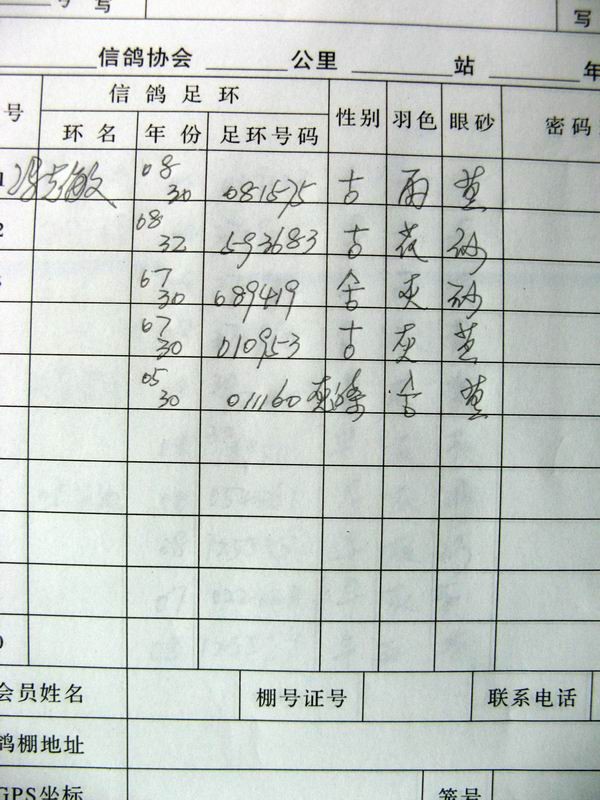 写
信鸽协会 公里 站 年
号 信鸽足环 性别 羽色 眼砂 密码
环名 年份 足环号码
08 30 081575 雨 黄
2 08 32 593683 花 砂
07 30 089419 灰 砂
07 30 010953 灰 黄
05 30 011160 黄
会员姓名 棚号证号 联系电话
鸽棚地址
GPS坐标 笼号